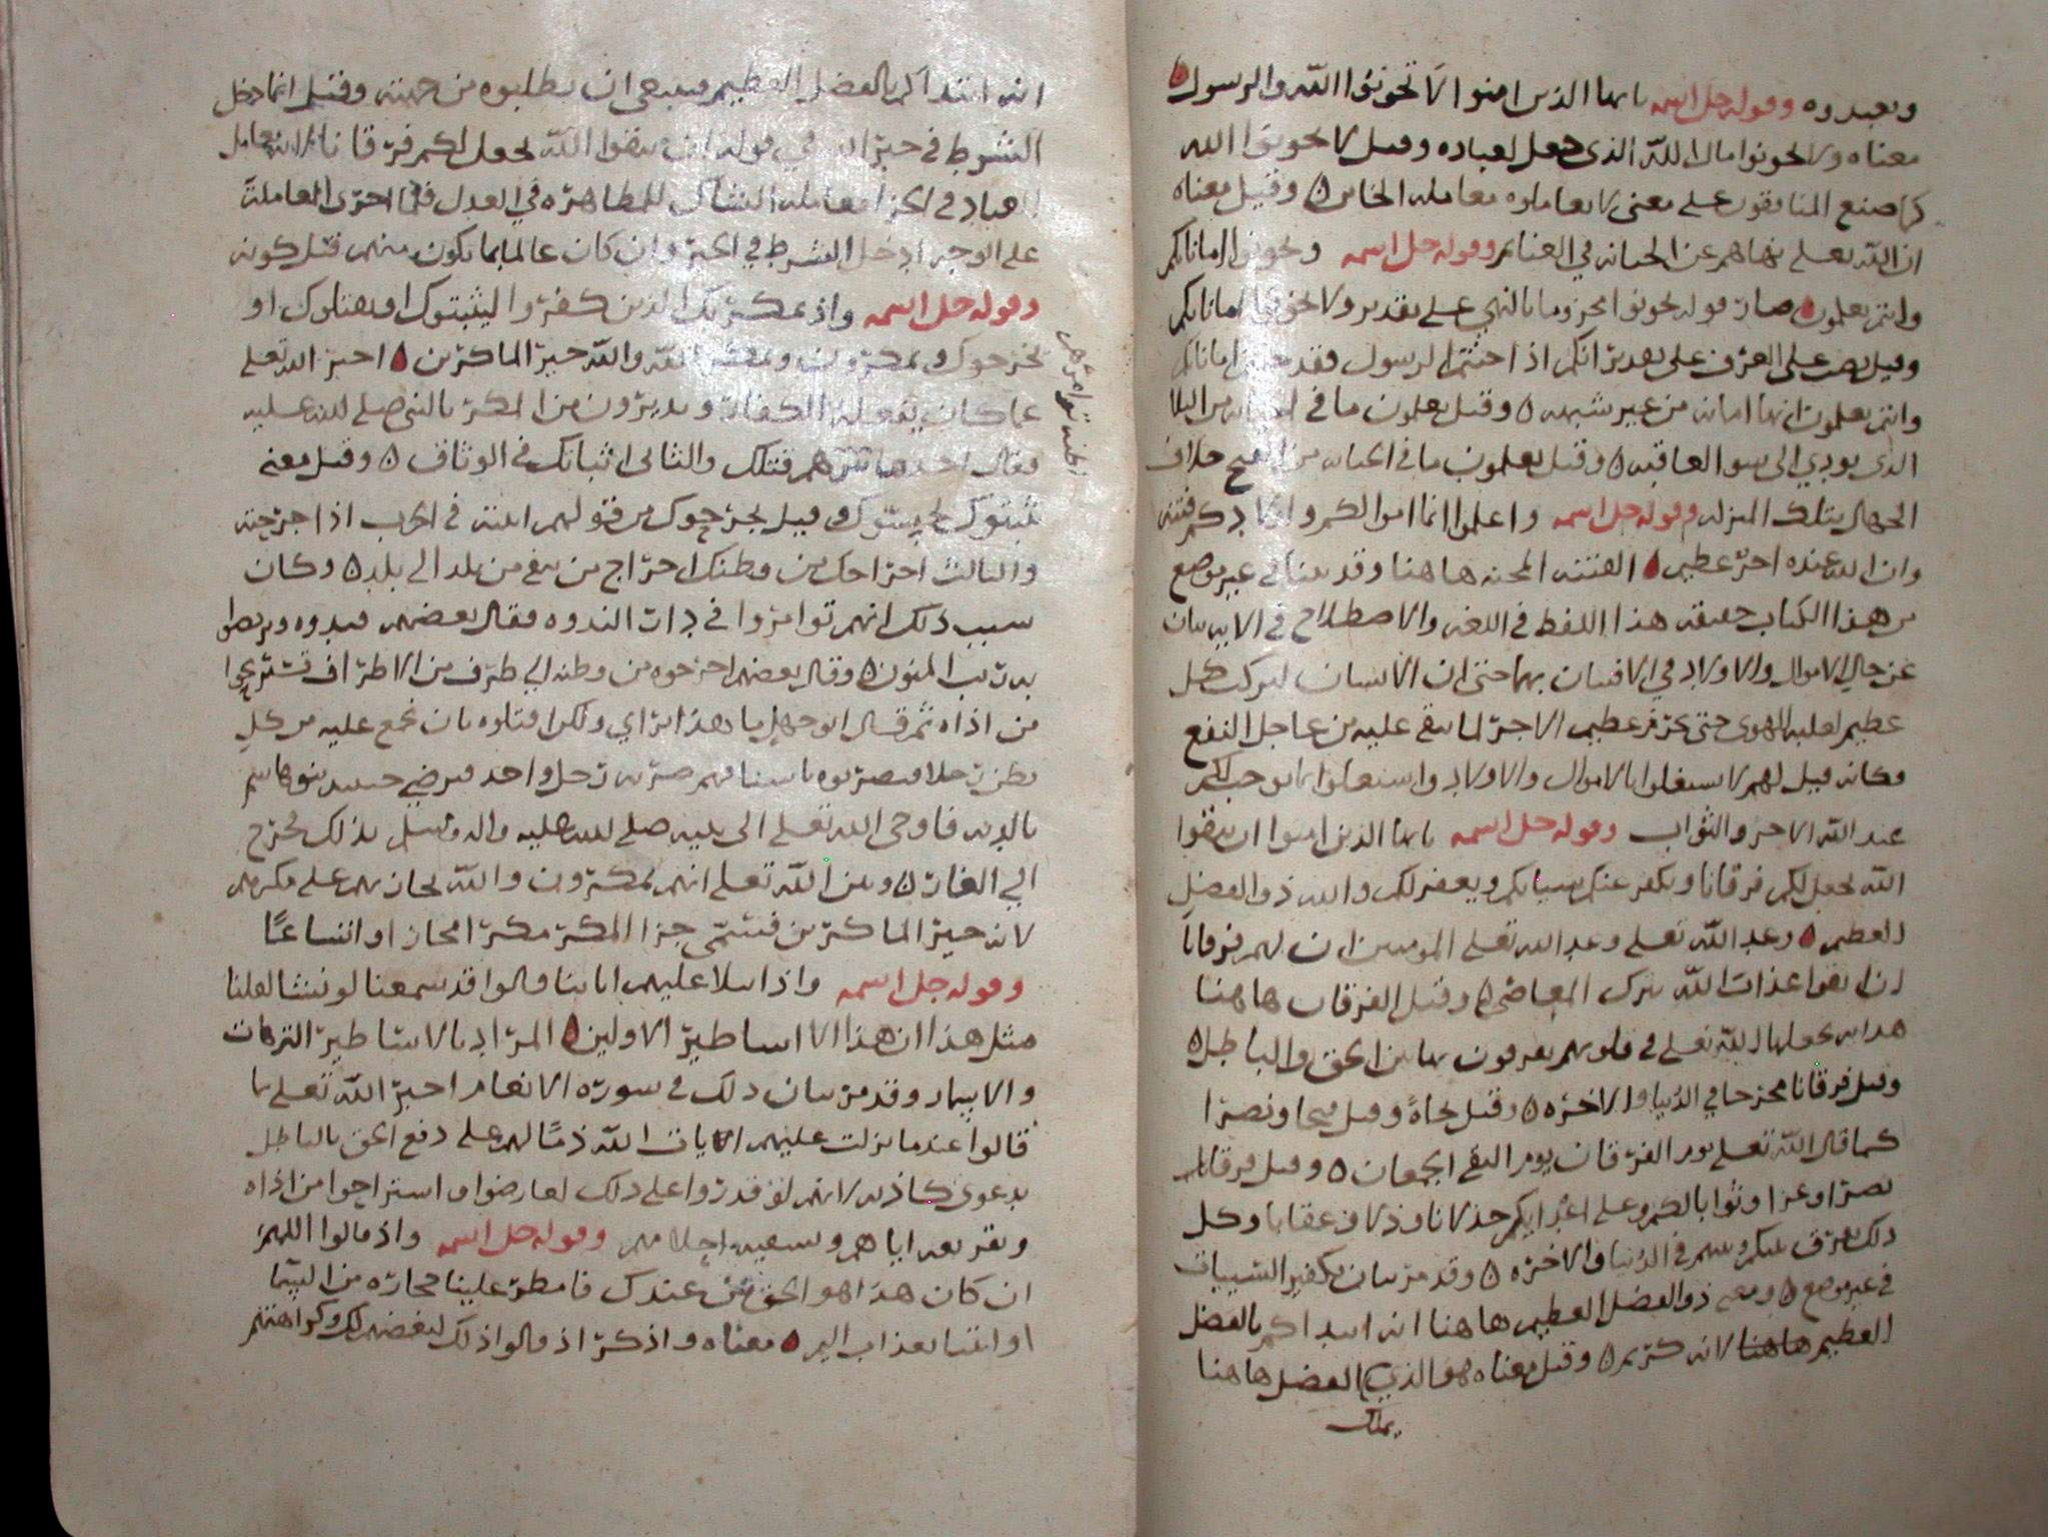 وتعبدوه وقوله جل اسمه يا ايها الذين امنوا لا تخونوا الله والرسول
معناه ولا تخونوا مال الله الذي جعل لعباده وقيل لا تخونوا الله
كما صنع المنافقون على معنى لا تعاملوه معاملة الخاين وقيل معناه
ان الله تعلى نهاهم عن الخيانه في الغنايم وقوله جل اسمه وتخونوا اماناتكم
وانتم تعلمون صار قوله تخونوا مجزوما بالنهي على تقدير ولا تخونوا اماناتكم
وقيل نصب على الصرف على تقدير انكم اذا خنتم الرسول فقد خنتم اماناتكم
وانتم تعلمون انها امانه من غير شبهه وقيل تعلمون ما في الخيانه من البلا
الذي يودي الى سو العاقبه وقيل تعلمون ما في الخيانه من القبح خلاف
الجهال بتلك المنزله وقوله جل اسمه واعلموا انما اموالكم واولادكم فتنه
وان الله عنده اجر عظيم الفتنه المحنه هاهنا وقد بينا في غير موضع
من هذا الكتاب حقيقه هذا اللفظ في اللغه والاصطلاح في الايه بيان
عن حال الاموال والاولاد في الافتتان بهما حتى ان الانسان ليركب كل
عظيم لغلبه الهوى حتى يحرم عظيم الاجر لما يبقى عليه من عاجل النفع
فكانه قيل لهم لا تشتغلوا بالاموال والاولاد واشتغلوا بما يوجب لكم
عند الله الاجر والثواب وقوله جل اسمه يا ايها الذين امنوا ان تتقوا
الله يجعل لكم فرقانا ويكفر عنكم سيياتكم ويغفر لكم والله ذو الفضل
العظيم وعد الله تعلى وعد الله تعلى المومنين ان لهم فرقانا
ان اتقوا عذاب الله بترك المعاصي وقيل الفرقان هاهنا
هدايه يجعلها الله تعلى في قلوبهم يفرقون بها بين الحق والباطل
وقيل فرقانا مخرجا في الدنيا والاخره وقيل نجاة وقيل فتحا ونصرا
كما قال الله تعلى يوم الفرقان يوم التقى الجمعان وقيل فرقانا
نصرا وعزا وثوابا لكم وعلى اعدايكم خذلانا وذلا وعقابا وكل
ذلك يفرق بينكم وبينهم في الدنيا والاخره وقد مر بيان تكفير السييات
في غير موضع ومعنى ذو الفضل العظيم هاهنا انه ابتداكم بالفضل
العظيم هاهنا لانه كريم وقيل معناه هو الذي الفضل هاهنا
يملك
انه ابتداكم بالفضل العظيم فينبغي ان تطلبوه من جهته وقيل انما دخل
الشرط في خبر الله في قوله ان تتقوا الله يجعل لكم فرقانا لانه يعامل
العباد في الجزا معاملة الشاك للمظاهره في العدل فلما اجرى المعاملة
على الوجه ادخل الشرط في الخبر وان كان عالما بما يكون منهم قبل كونه
وقوله جل اسمه واذ يمكر بك الذين كفروا ليثبتوك او يقتلوك او
يخرجوك ويمكرون ويمكر الله والله خير الماكرين اخبر الله تعلى
عما كان يفعله الكفار ويديرون من المكر بالنبي صلى الله عليه
فقال احدها قتلك والثاني اثباتك في الوثاق وقيل معنى
يثبتوك وقيل يجرحوك من قولهم اثبته في الحرب اذا جرحته
والثالث اخراجك من وطنك اخراج من ينفى من بلد الى بلد وكان
سبب ذلك انهم توامروا في دار الندوه فقال بعضهم قيدوه وتربصوا
به ريب المنون وقال بعضهم اخرجوه من وطنه الى طرف من الاطراف تستريحوا
من اذاه ثم قال ابو جهل ما هذا براي ولكن اقتلوه بان نجمع عليه من كل
بطن رجلا فيضربوه باسيافهم ضربه رجل واحد فيرضى حينيذ بنو هاشم
بالديه فاوحى الله تعلى الى نبيه صلى الله عليه واله وسلم بذلك فخرج
الى الغار وبين الله تعلى انهم يمكرون والله يجازيهم على مكرهم
لانه خير الماكرين فسمى جزا المكر مكرا مجازا واتساعا
وقوله جل اسمه واذا تتلا عليهم اياتنا قالوا قد سمعنا لو نشا لقلنا
مثل هذا ان هذا الا اساطير الاولين المراد بالاساطير الترهات
والاسمار وقد مر بيان ذلك في سورة الانعام اخبر الله تعلى بما
قالوا عندما نزلت عليهم ايات الله ذما لهم على دفع الحق بالباطل
بدعوى كاذبه لانهم لو قدروا على ذلك لعارضوا واستراحوا من اذاه
وتقريعه اياهم وتسفيه احلامهم وقوله جل اسمه واذ قالوا اللهم
ان كان هذا هو الحق من عندك فامطر علينا حجارة من السما
او ايتنا بعذاب اليم معناه واذكر اذ قالوا ذلك لبغضهم لك وكراهتهم